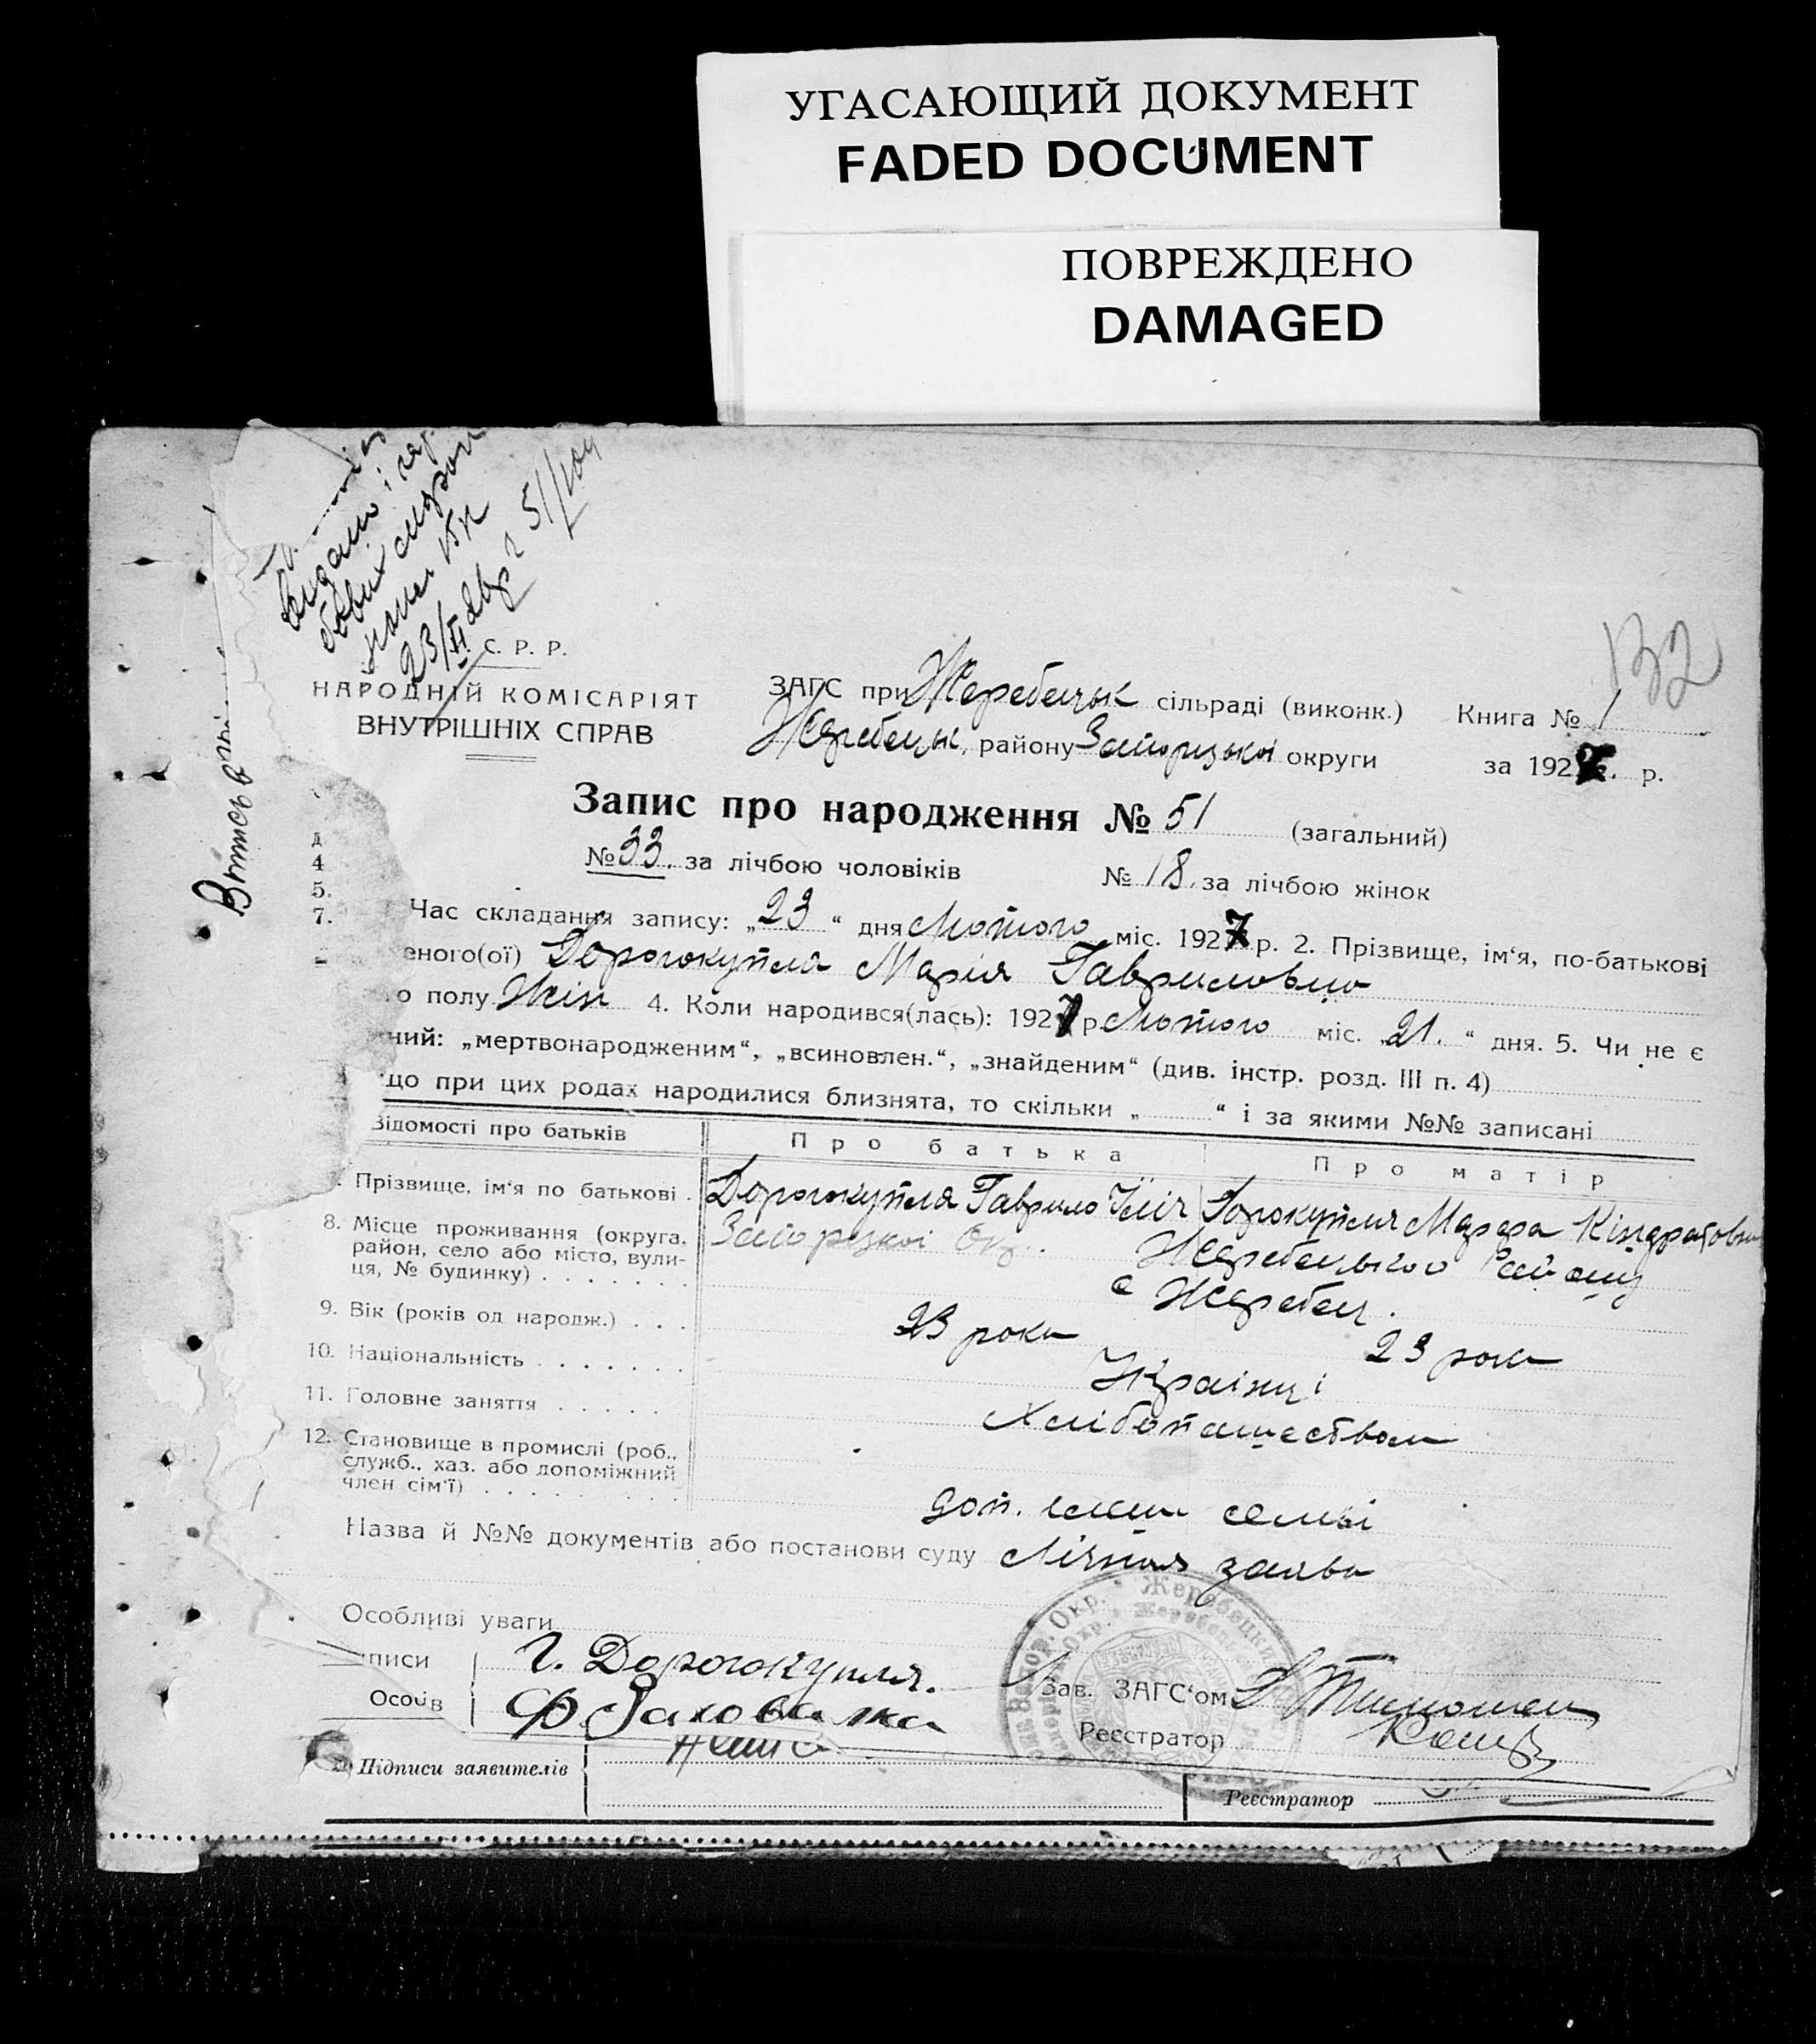 УГАСАЮЩИЙ ДОКУМЕНТ
FADED DOCUMENT
ПОВРЕЖДЕНО
DAMAGED
132
51/104
С. Р. Р.
НАРОДНІЙ КОМІСАРІЯТ
ВНУТРІШНІХ СПРАВ
ЗАГС при Жеребецьк сільраді (виконк.) Книга № 1
Жеребецьк. району Запорізької округи за 1927 р.
Запис про народження № 51 (загальний)
№ 33. за лічбою чоловіків № 18. за лічбою жінок
4
5.
7.
Час складання запису: „23“ дня Лютого міс. 1927 р. 2. Прізвище, ім‘я, по-батькові
еного(ої) Дорогокупля Марія Гавриловна
о полу Жін 4. Коли народився(лась): 1927 р Лютого міс. „21.“ дня. 5. Чи не є
ний: „мертвонародженим“, „всиновлен.“, „знайденим“ (див. інстр. розд. III п. 4)
що при цих родах народилися близнята, то скільки „ “ і за якими №№ записані
Відомості про батьків Про батька Про матір
Прізвище, ім‘я по батькові Дорогокупля Гаврило Ілліч Дорокупля Марфа Кіндратовна
8. Місце проживання (округа, район, село або місто, вулиця, № будинку) Запорізкої Окр.
Жеребецького Району
с Жеребец.
9. Вік (років од народж.) 23 роки 23 роки
10. Національність Українці
11. Головне заняття Хлібопашеством
12. Становище в промислі (роб., служб., хаз. або допоміжний член сім‘ї)
доп. член семьі
Назва й №№ документів або постанови суду Лічная заява
Особливі уваги
писи Г. Дорогокупля.
Осоїв
Зав. ЗАГС‘ом
Реєстратор
Підписи заявителів
Реєстратор